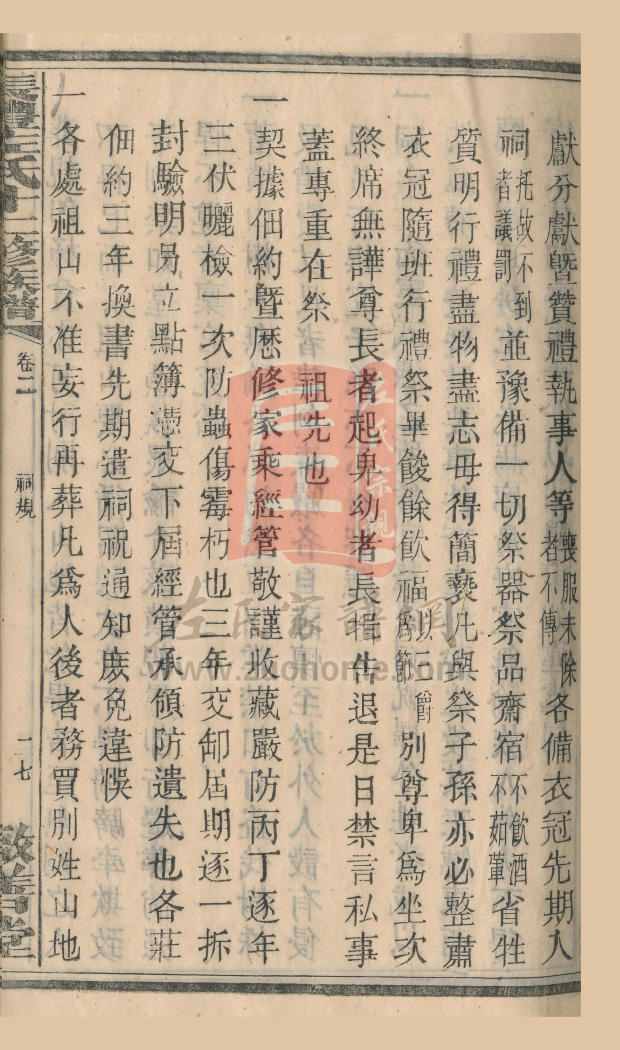 獻分獻曁贊禮執事人等喪服未除者不傳各備衣冠先期入
祠托故不到者議罰並豫備一切祭器祭品齋宿不飲酒不茹葷省牲
質明行禮盡物盡志毋得簡褻凡與祭子孫亦必整肅
衣冠隨班行禮祭畢餕餘飲福以三爵爲節別尊卑爲坐次
終席無譁尊長者起臾幼者長揖告退是日禁言私事
蓋專重在祭 祖先也
一契據佃約曁歷修家乘經管敬謹收藏嚴防丙丁逐年
三伏曬檢一次防蟲傷霉朽也三年交卸屆期逐一拆
封驗明另立點簿憑交下屆經管承領防遺失也各莊
佃約三年換書先期遣祠祝通知庶免違悞
一各處祖山不准妄行再葬凡爲人後者務買別姓山地
長灃左氏十二修族譜
卷二
祠規
二七
敬善堂
左氏宗親
左氏家譜網
www.zxohome.com